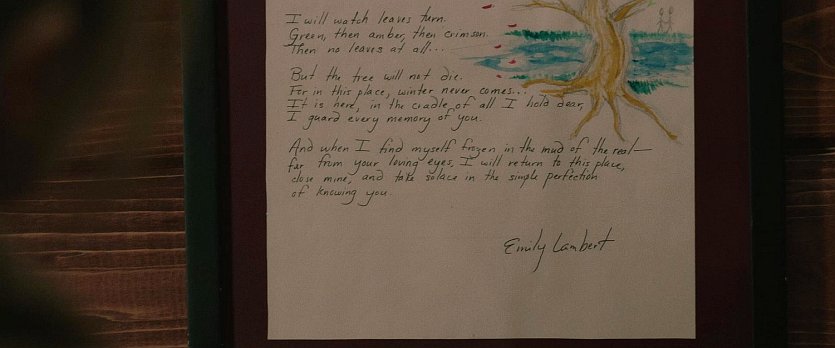 I will watch leaves turn.
Green, then amber, then crimson.
Then no leaves at all...
But the tree will not die.
For in this place, winter never comes...
It is here, in the cradle of all I hold dear,
I guard every memory of you.
And when I find myself frozen in the mud of the real—
far from your loving eyes, I will return to this place,
close mine, and take solace in the simple perfection
of knowing you.
Emily Lambert